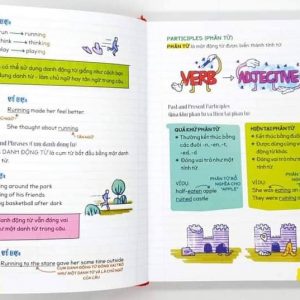 VÍ DỤ:
run → running
think → thinking
play → playing
có thể sử dụng danh động từ giống như cách bạn
dụng danh từ - làm chủ ngữ hay tân ngữ trong câu.
VÍ DỤ:
Running made her feel better.
CHỦ NGỮ
She thought about running.
TÂN NGỮ
DANH ĐỘNG TỪ là cụm từ bắt đầu bằng một danh
từ.
VÍ DỤ:
running around the park
of his friends
basketball after dark
danh động từ vẫn đóng vai
như một danh từ trong câu.
VÍ DỤ:
Running to the store gave her some time outside.
CỤM DANH ĐỘNG TỪ ĐÓNG VAI TRÒ
NHƯ MỘT DANH TỪ VÀ LÀ CHỦ NGỮ
CỦA CÂU
PARTICIPLES (PHÂN TỪ)
PHÂN TỪ là một động từ được biến thành tính từ.
VERB
ADJECTIVE
Past and Present Participles
Quá khứ phân từ và Hiện tại phân từ
QUÁ KHỨ PHÂN TỪ
• Thường kết thúc bằng
các đuôi -n, -en, -t,
-ed, -d
• Đóng vai trò như một
tính từ
VÍ DỤ:
half-eaten apple
ruined castle
PHÂN TỪ BỔ
NGHĨA CHO
"APPLE"
HIỆN TẠI PHÂN TỪ
• Kết thúc bằng
đuôi
• Đóng vai trò như
tính từ
VÍ DỤ:
She was eating
They were ruining